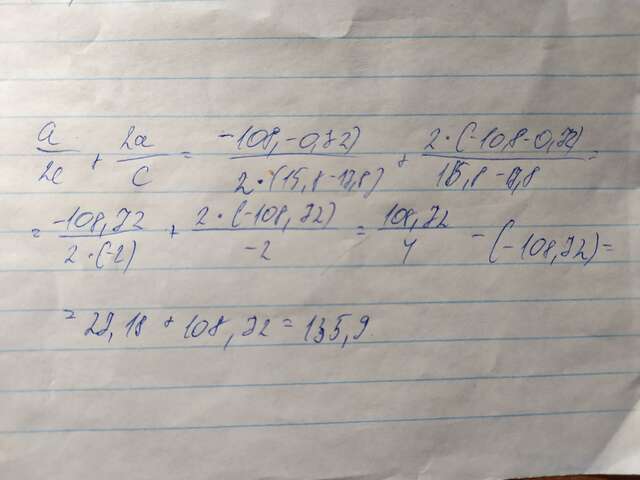 a/2c + 2a/c = -108,-0,72)/2·(15,8-17,8) + 2·(-10,8-0,72)/15,8-17,8 =
= -108,72/2·(-2) + 2·(-108,72)/-2 = 108,72/4 - (-108,72) =
= 27,18 + 108,72 = 135,9